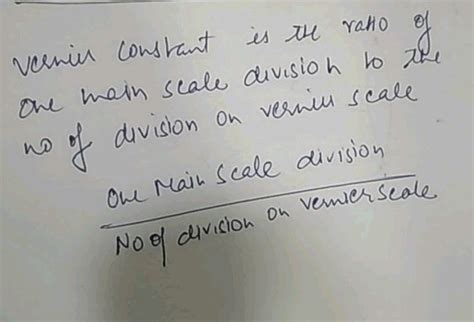 vernier constant is the ratio of
one main scale division to the
no of division on vernier scale
One Main scale division
No of division on vernier scale